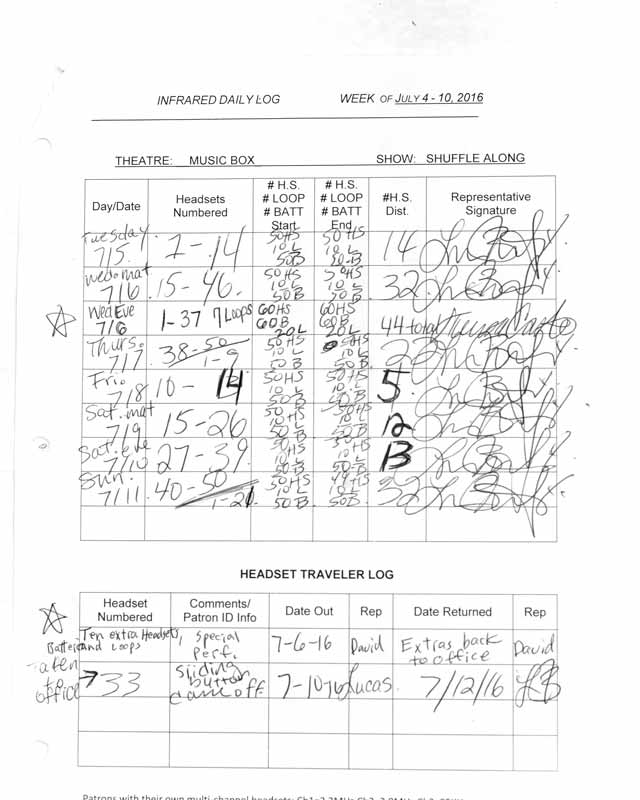 INFRARED DAILY LOG WEEK OF JULY 4 - 10, 2016
THEATRE: MUSIC BOX SHOW: SHUFFLE ALONG
Day/Date Headsets Numbered # H.S. # LOOP # BATT Start # H.S. # LOOP # BATT End #H.S. Dist. Representative Signature
Tuesday 7/5 1-14 50HS 10L 50B 50HS 10L 50B 14
Wed mat 7/6 15-46 50HS 10L 50B 50HS 10L 50B 32
Wed Eve 7/6 1-37 7 Loops 60HS 60B 20L 60HS 60B 20L 44 total
Thurs. 7/7 38-50 1-9 50HS 10L 50B 50HS 10L 50B 22
Fri. 7/8 10-14 50HS 10L 50B 50HS 10L 50B 5
Sat. mat 7/9 15-26 50HS 10L 50B 50HS 10L 50B 12
Sat. eve 7/10 27-39 50HS 10L 50B 50HS 10L 50B 13
Sun. 7/11 40-50 1-21 50HS 10L 50B 49HS 10L 50B 32
HEADSET TRAVELER LOG
Headset Numbered Comments/ Patron ID Info Date Out Rep Date Returned Rep
Ten extra Headsets, Batteries and Loops special perf. 7-6-16 David Extras back to office David
taken to office → 33 sliding button came off 7-10-16 Lucas. 7/12/16 LB